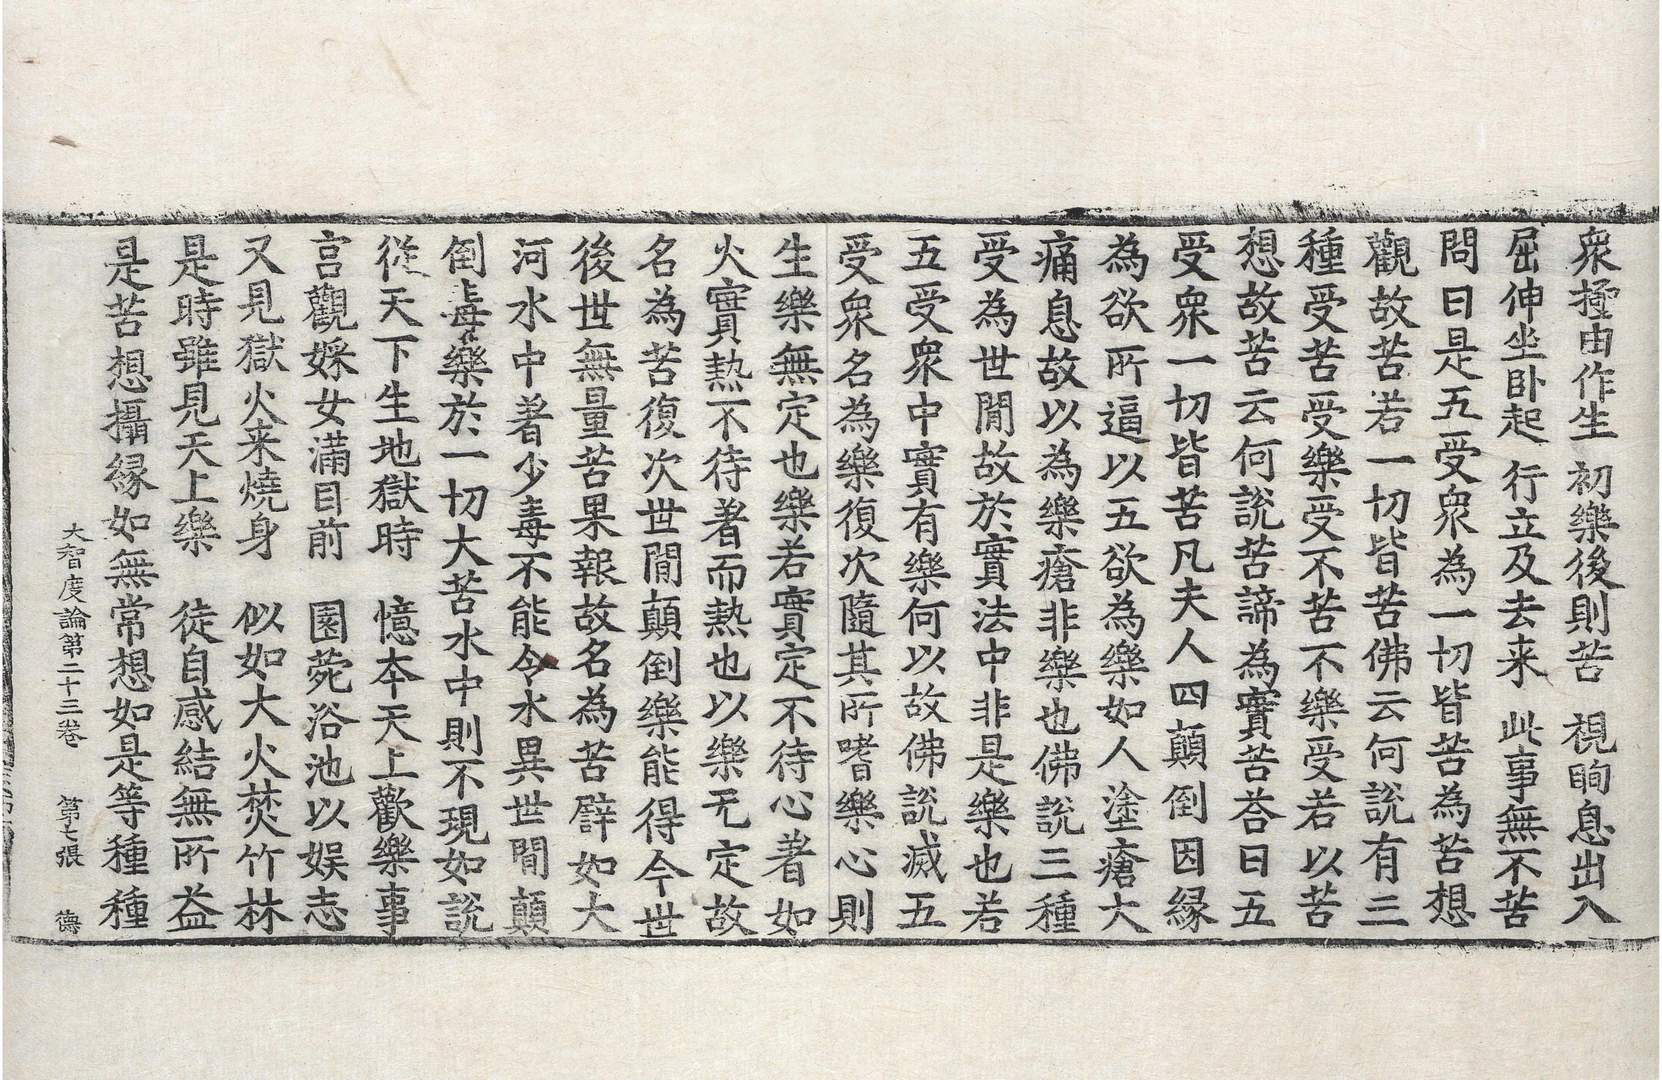 衆極由作生 初樂後則苦 視眴息出入
屈伸坐臥起 行立及去来 此事無不苦
問曰是五受衆為一切皆苦為苦想
觀故苦若一切皆苦佛云何說有三
種受苦受樂受不苦不樂受若以苦
想故苦云何說苦諦為實苦荅曰五
受衆一切皆苦凡夫人四顛倒因縁
為欲所逼以五欲為樂如人塗瘡大
痛息故以為樂瘡非樂也佛說三種
受為世閒故於實法中非是樂也若
五受衆中實有樂何以故佛說滅五
受衆名為樂復次隨其所嗜樂心則
生樂無定也樂若實定不待心著如
火實熱不待著而熱也以樂无定故
名為苦復次世閒顛倒樂能得今世
後世無量苦果報故名為苦譬如大
河水中著少毒不能令水異世閒顛
倒毒樂於一切大苦水中則不現如說
從天下生地獄時 憶本天上歡樂事
宮觀婇女滿目前 園菀浴池以娱志
又見獄火来燒身 似如大火焚竹林
是時雖見天上樂 徒自感結無所益
是苦想攝縁如無常想如是等種種
大智度論第二十三卷 第七張 德